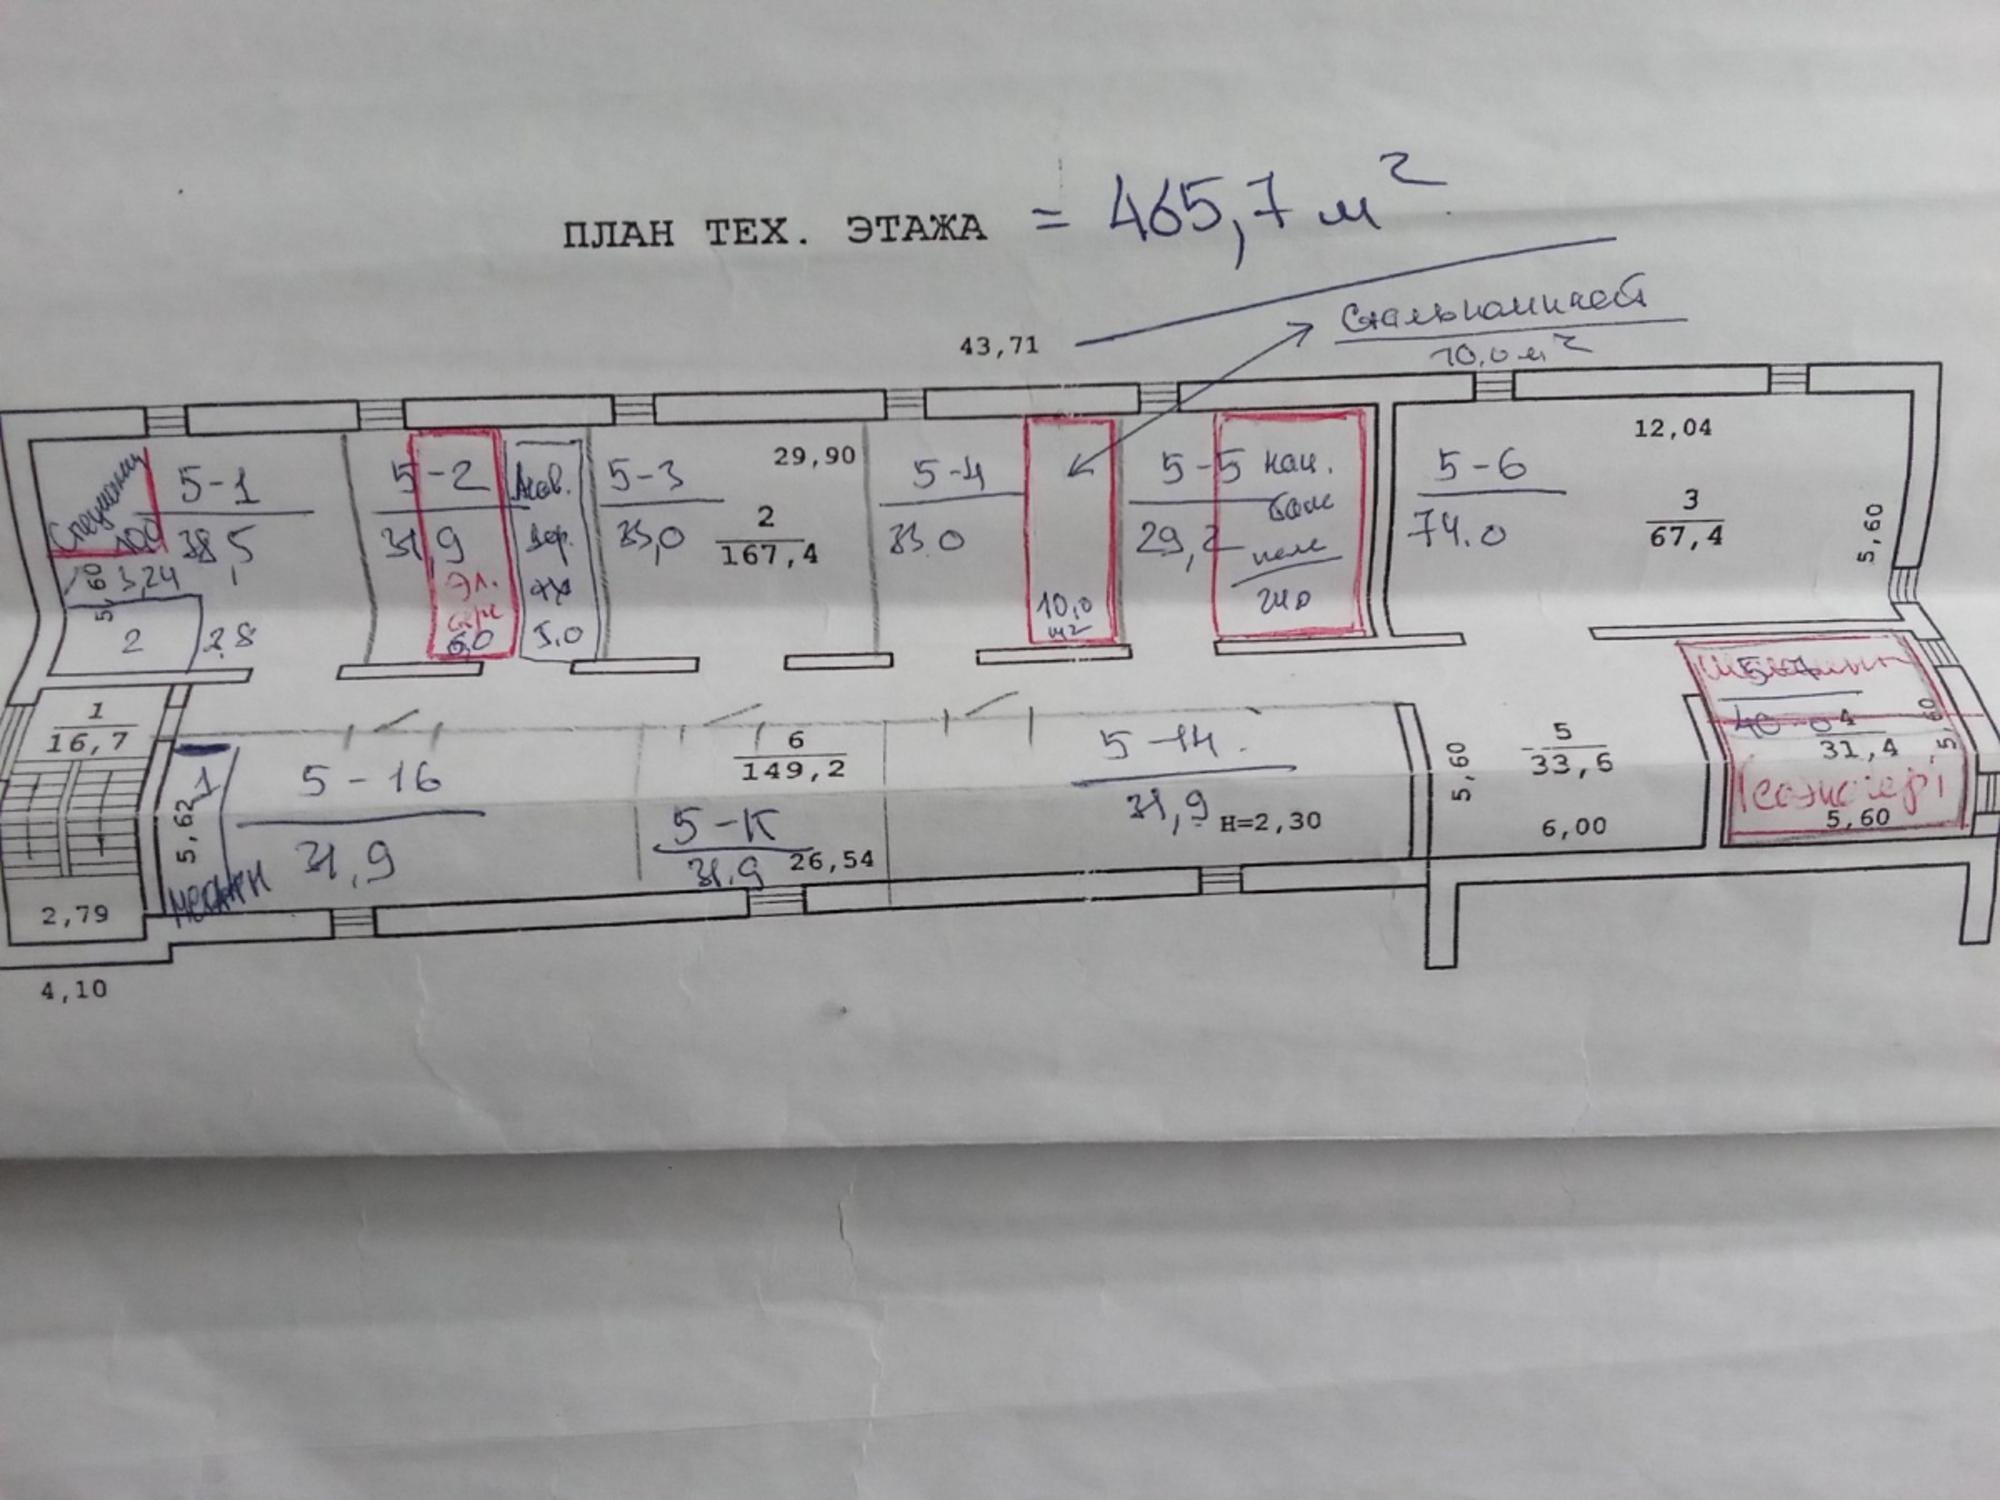 ПЛАН ТЕХ. ЭТАЖА = 465,7 м²
43,71
10,0 м²
12,04
29,90
5-1
38,5
5-2
31,9
Эл.
6,0
5,0
5-3
33,0
2
167,4
5-4
33.0
10,0
м2
5-5
29,2
24,0
5-6
74.0
3
67,4
5,60
5,60
3,24
2
2,8
1
16,7
5,62
1
5-16
31,9
6
149,2
5-К
31,9
26,54
5-14
31,9
H=2,30
5,60
5
33,6
6,00
4
31,4
5,60
5,60
2,79
4,10